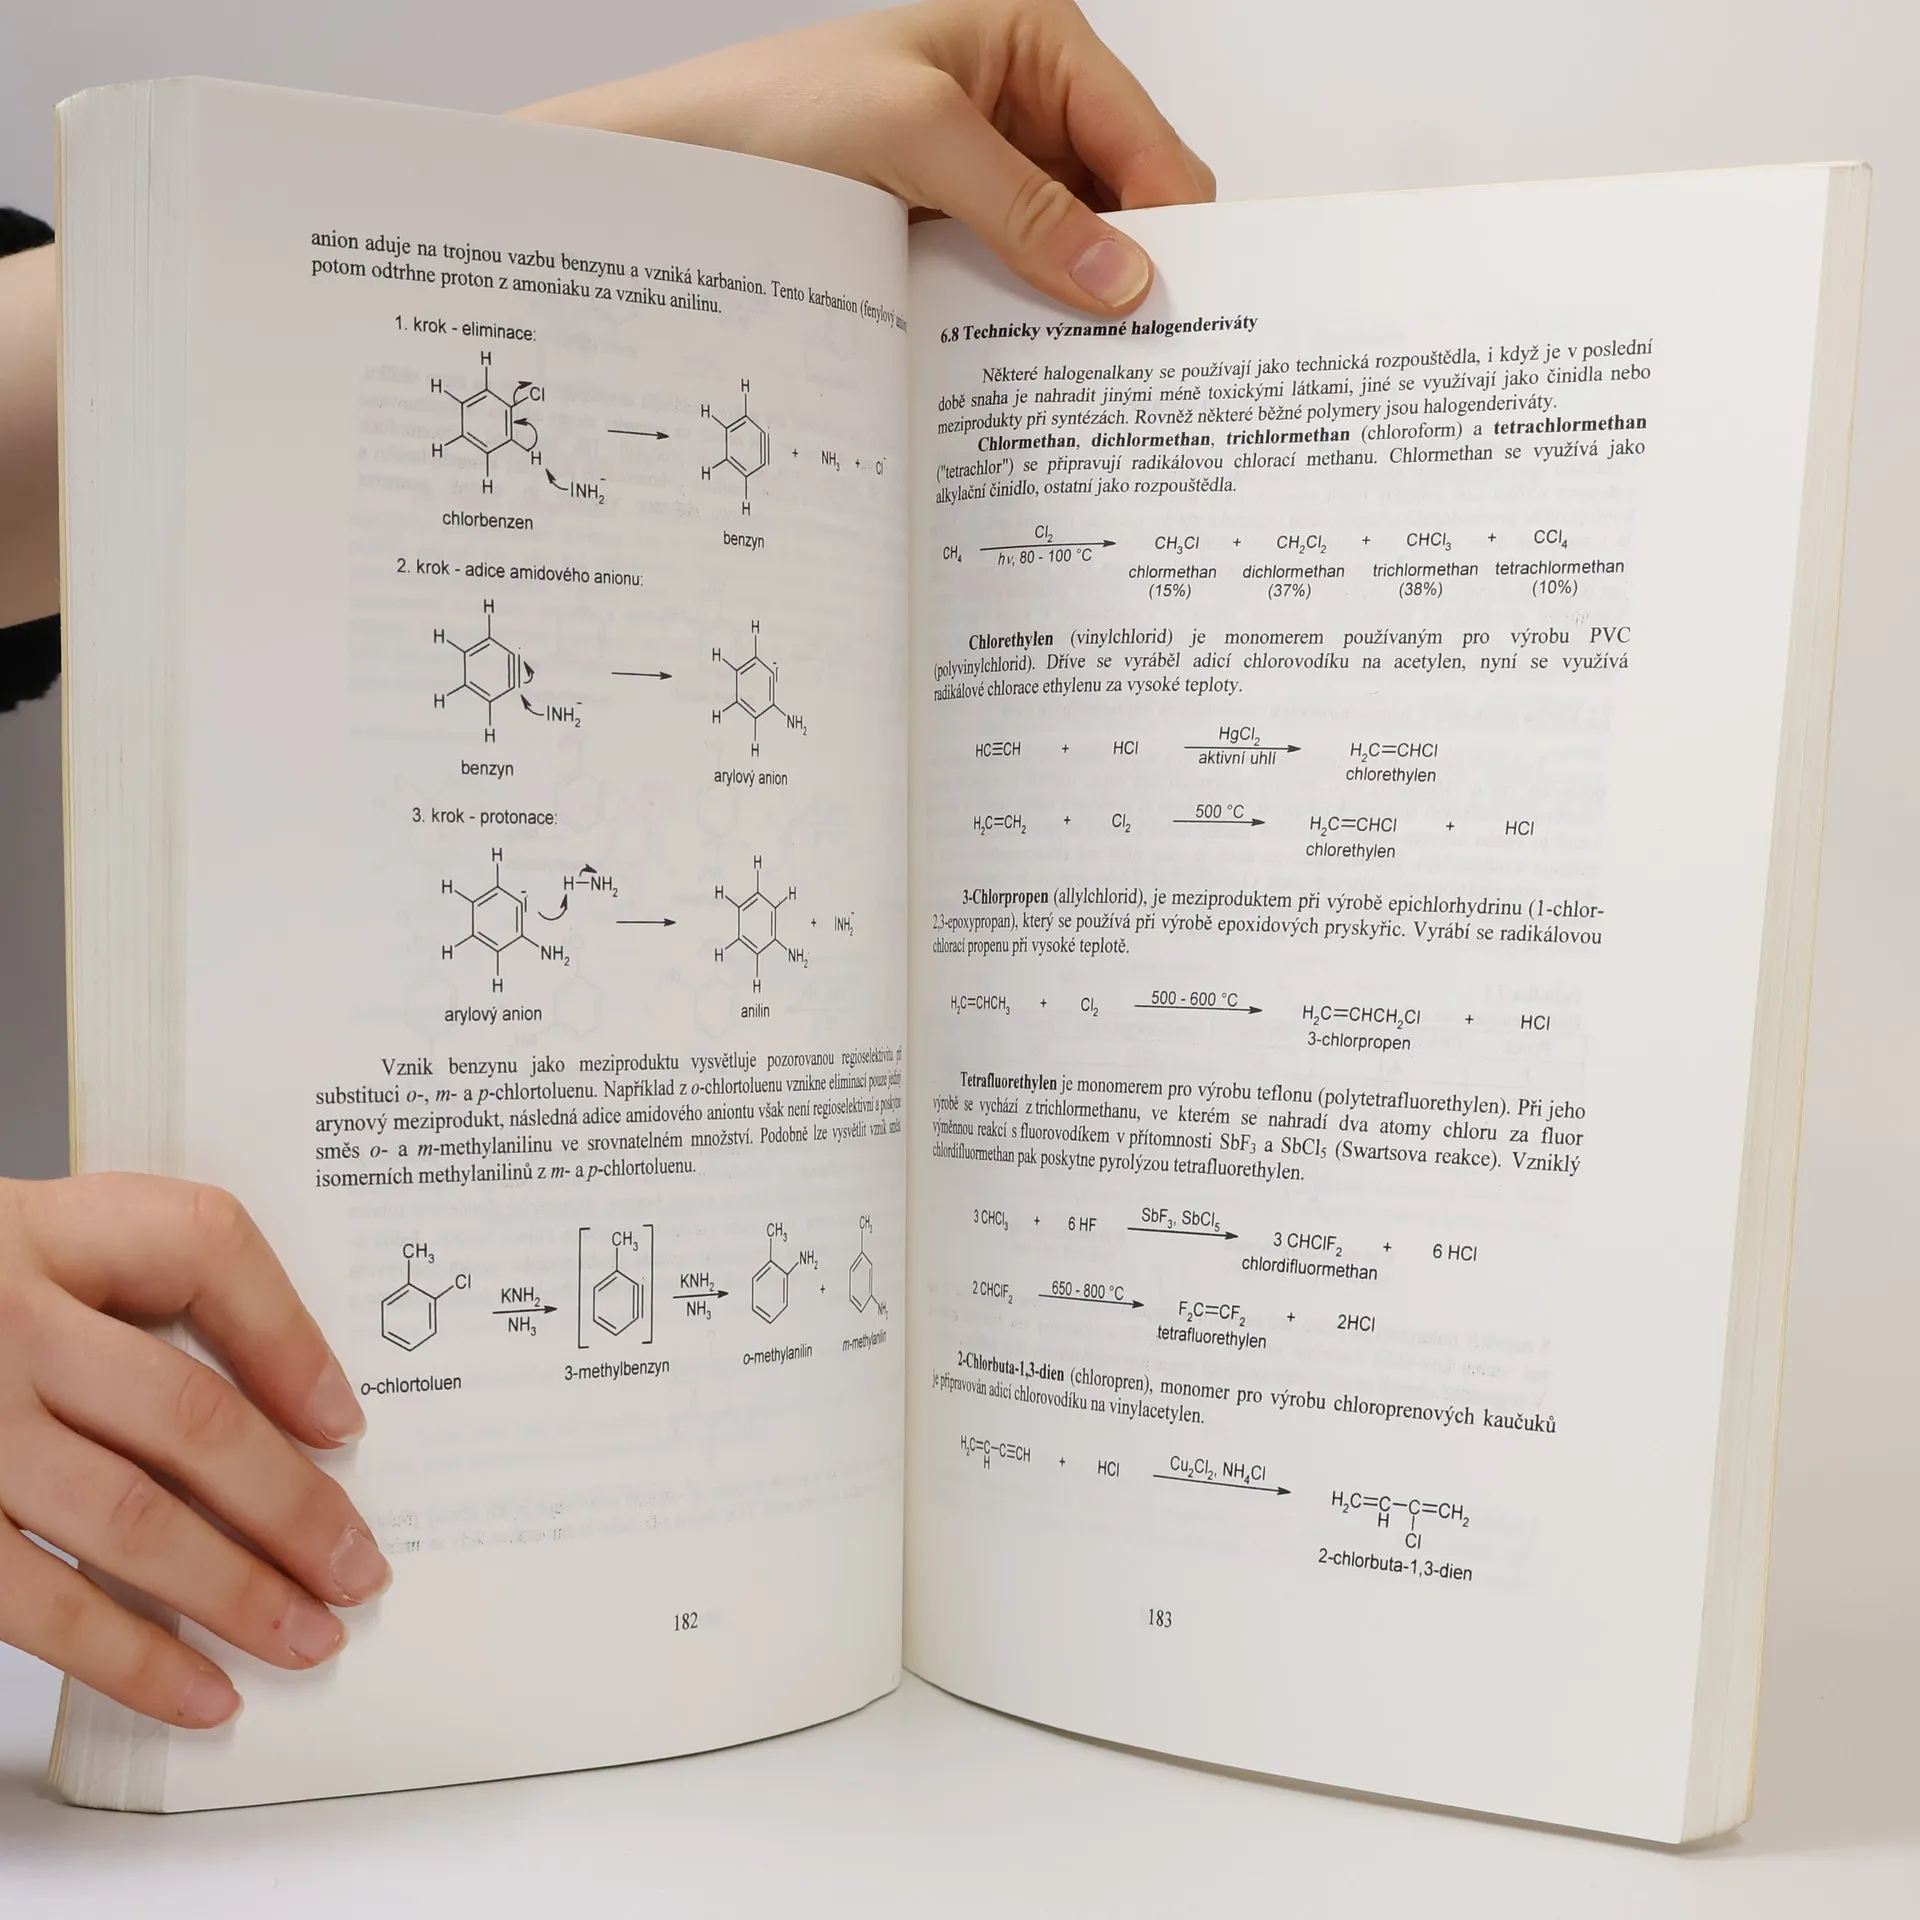 anion aduje na trojnou vazbu benzynu a vzniká karbanion. Tento karbanion (fenylový
potom odtrhne proton z amoniaku za vzniku anilinu.
1. krok - eliminace:
H
H Cl H H
+ NH₃ + Cl⁻
H H H
H INH₂⁻ H
chlorbenzen benzyn
2. krok - adice amidového anionu:
H H
H H
H INH₂⁻ H NH₂
H H
benzyn arylový anion
3. krok - protonace:
H H–NH₂ H
H H H
+ INH₂⁻
H NH₂ H NH₂
H H
arylový anion anilin
Vznik benzynu jako meziproduktu vysvětluje pozorovanou regioselektivitu při
substituci o-, m- a p-chlortoluenu. Například z o-chlortoluenu vznikne eliminací pouze jediný
arynový meziprodukt, následná adice amidového aniontu však není regioselektivní a poskytne
směs o- a m-methylanilinu ve srovnatelném množství. Podobně lze vysvětlit vznik směsi
isomerních methylanilinů z m- a p-chlortoluenu.
CH₃ CH₃ CH₃ CH₃
Cl KNH₂ KNH₂ NH₂ +
NH₃ NH₃ NH₂
o-chlortoluen 3-methylbenzyn o-methylanilin m-methylanilin
182
6.8 Technicky významné halogenderiváty
Některé halogenalkany se používají jako technická rozpouštědla, i když je v poslední
době snaha je nahradit jinými méně toxickými látkami, jiné se využívají jako činidla nebo
meziprodukty při syntézách. Rovněž některé běžné polymery jsou halogenderiváty.
Chlormethan, dichlormethan, trichlormethan (chloroform) a tetrachlormethan
("tetrachlor") se připravují radikálovou chlorací methanu. Chlormethan se využívá jako
alkylační činidlo, ostatní jako rozpouštědla.
CH₄ Cl₂ CH₃Cl + CH₂Cl₂ + CHCl₃ + CCl₄
hν, 80 - 100 °C
chlormethan dichlormethan trichlormethan tetrachlormethan
(15%) (37%) (38%) (10%)
Chlorethylen (vinylchlorid) je monomerem používaným pro výrobu PVC
(polyvinylchlorid). Dříve se vyráběl adicí chlorovodíku na acetylen, nyní se využívá
radikálové chlorace ethylenu za vysoké teploty.
HC≡CH + HCl HgCl₂ H₂C=CHCl
aktivní uhlí chlorethylen
H₂C=CH₂ + Cl₂ 500 °C H₂C=CHCl + HCl
chlorethylen
3-Chlorpropen (allylchlorid), je meziproduktem při výrobě epichlorhydrinu (1-chlor-
2,3-epoxypropan), který se používá při výrobě epoxidových pryskyřic. Vyrábí se radikálovou
chlorací propenu při vysoké teplotě.
H₂C=CHCH₃ + Cl₂ 500 - 600 °C H₂C=CHCH₂Cl + HCl
3-chlorpropen
Tetrafluorethylen je monomerem pro výrobu teflonu (polytetrafluorethylen). Při jeho
výrobě se vychází z trichlormethanu, ve kterém se nahradí dva atomy chloru za fluor
výměnnou reakcí s fluorovodíkem v přítomnosti SbF₃ a SbCl₅ (Swartsova reakce). Vzniklý
chlordifluormethan pak poskytne pyrolýzou tetrafluorethylen.
3 CHCl₃ + 6 HF SbF₃, SbCl₅ 3 CHClF₂ + 6 HCl
chlordifluormethan
2 CHClF₂ 650 - 800 °C F₂C=CF₂ + 2HCl
tetrafluorethylen
2-Chlorbuta-1,3-dien (chloropren), monomer pro výrobu chloroprenových kaučuků
je připravován adicí chlorovodíku na vinylacetylen.
H₂C=C–C≡CH + HCl Cu₂Cl₂, NH₄Cl H₂C=C–C=CH₂
H H Cl
2-chlorbuta-1,3-dien
183